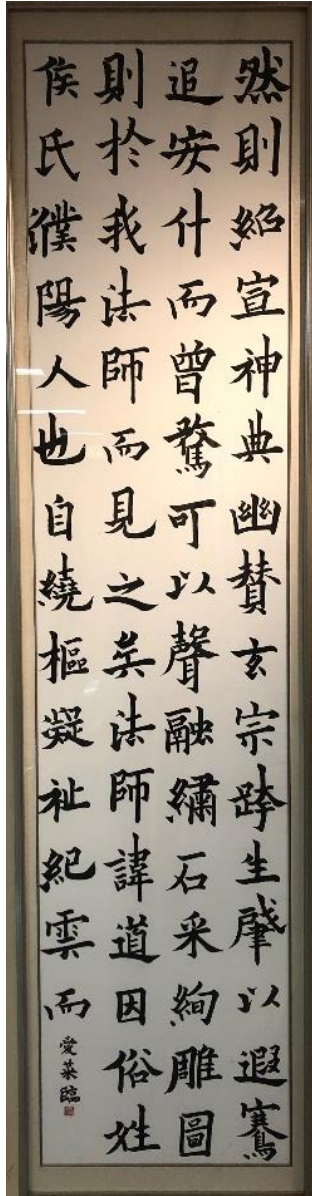 然則紹宣神典幽賛玄宗跨生肇以遐鶱
追安什而曾騖可以聲融繡石采絢雕圖
則於我法師而見之矣法師諱道因俗姓
侯氏濮陽人也自繞樞凝祉紀雲而
愛菜臨